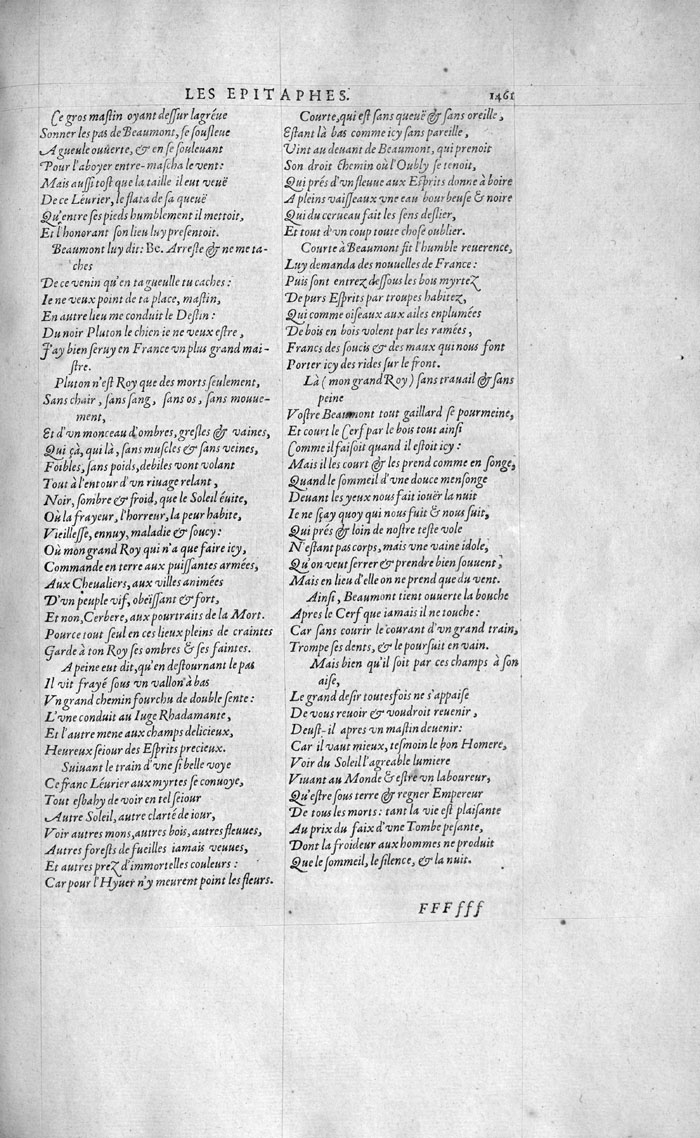 LES EPITAPHES. 1461
Ce gros mastin oyant dessur la gréue
Sonner les pas de Beaumont, se sousleue
A gueule ouuerte, & en se souleuant
Pour l'aboyer entre-mascha le vent:
Mais aussi tost que la taille il eut veuë
De ce Léurier, le flata de sa queuë
Qu'entre ses pieds humblement il mettoit,
Et l'honorant son lieu luy presentoit.
Beaumont luy dit: Be. Arreste & ne me ta-
ches
De ce venin qu'en ta gueulle tu caches:
Ie ne veux point de ta place, mastin,
En autre lieu me conduit le Destin:
Du noir Pluton le chien ie ne veux estre,
J'ay bien seruy en France vn plus grand mai-
stre.
Pluton n'est Roy que des morts seulement,
Sans chair, sans sang, sans os, sans mouue-
ment,
Et d'vn monceau d'ombres, gresles & vaines,
Qui çà, qui là, sans muscles & sans veines,
Foibles, sans poids, debiles vont volant
Tout à l'entour d'vn riuage relant,
Noir, sombre & froid, que le Soleil éuite,
Où la frayeur, l'horreur, la peur habite,
Vieillesse, ennuy, maladie & soucy:
Où mon grand Roy qui n'a que faire icy,
Commande en terre aux puissantes armées,
Aux Cheualiers, aux villes animées
D'vn peuple vif, obeïssant & fort,
Et non, Cerbere, aux pourtraits de la Mort.
Pource tout seul en ces lieux pleins de craintes
Garde à ton Roy ses ombres & ses faintes.
A peine eut dit, qu'en destournant le pas
Il vit frayé sous vn vallon à bas
Vn grand chemin fourchu de double sente:
L'vne conduit au Iuge Rhadamante,
Et l'autre mene aux champs delicieux,
Heureux seiour des Esprits precieux.
Suiuant le train d'vne si belle voye
Ce franc Léurier aux myrtes se conuoye,
Tout esbahy de voir en tel seiour
Autre Soleil, autre clarté de iour,
Voir autres mons, autres bois, autres fleuues,
Autres forests de fueilles iamais veuues,
Et autres prez d'immortelles couleurs:
Car pour l'Hyuer n'y meurent point les fleurs.
Courte, qui est sans queuë & sans oreille,
Estant là bas comme icy sans pareille,
Vint au deuant de Beaumont, qui prenoit
Son droit chemin où l'Oubly se tenoit,
Qui prés d'vn fleuue aux Esprits donne à boire
A pleins vaisseaux vne eau bourbeuse & noire
Qui du cerueau fait les sens deslier,
Et tout d'vn coup toute chose oublier.
Courte à Beaumont fit l'humble reuerence,
Luy demanda des nouuelles de France:
Puis sont entrez dessous les bois myrtez
De purs Esprits par troupes habitez,
Qui comme oiseaux aux ailes emplumées
De bois en bois volent par les ramées,
Francs des soucis & des maux qui nous font
Porter icy des rides sur le front.
Là (mon grand Roy) sans trauail & sans
peine
Vostre Beaumont tout gaillard se pourmeine,
Et court le Cerf par le bois tout ainsi
Comme il faisoit quand il estoit icy:
Mais il les court & les prend comme en songe,
Quand le sommeil d'vne douce mensonge
Deuant les yeux nous fait iouër la nuit
Ie ne sçay quoy qui nous fuit & nous suit,
Qui prés & loin de nostre teste vole
N'estant pas corps, mais vne vaine idole,
Qu'on veut serrer & prendre bien souuent,
Mais en lieu d'elle on ne prend que du vent.
Ainsi, Beaumont tient ouuerte la bouche
Apres le Cerf que iamais il ne touche:
Car sans courir le courant d'vn grand train,
Trompe ses dents, & le poursuit en vain.
Mais bien qu'il soit par ces champs à son
aise,
Le grand desir toutesfois ne s'appaise
De vous reuoir & voudroit reuenir,
Deust-il apres vn mastin deuenir:
Car il vaut mieux, tesmoin le bon Homere,
Voir du Soleil l'agreable lumiere
Viuant au Monde & estre vn laboureur,
Qu'estre sous terre & regner Empereur
De tous les morts: tant la vie est plaisante
Au prix du faix d'vne Tombe pesante,
Dont la froideur aux hommes ne produit
Que le sommeil, le silence, & la nuit.
FFFfff